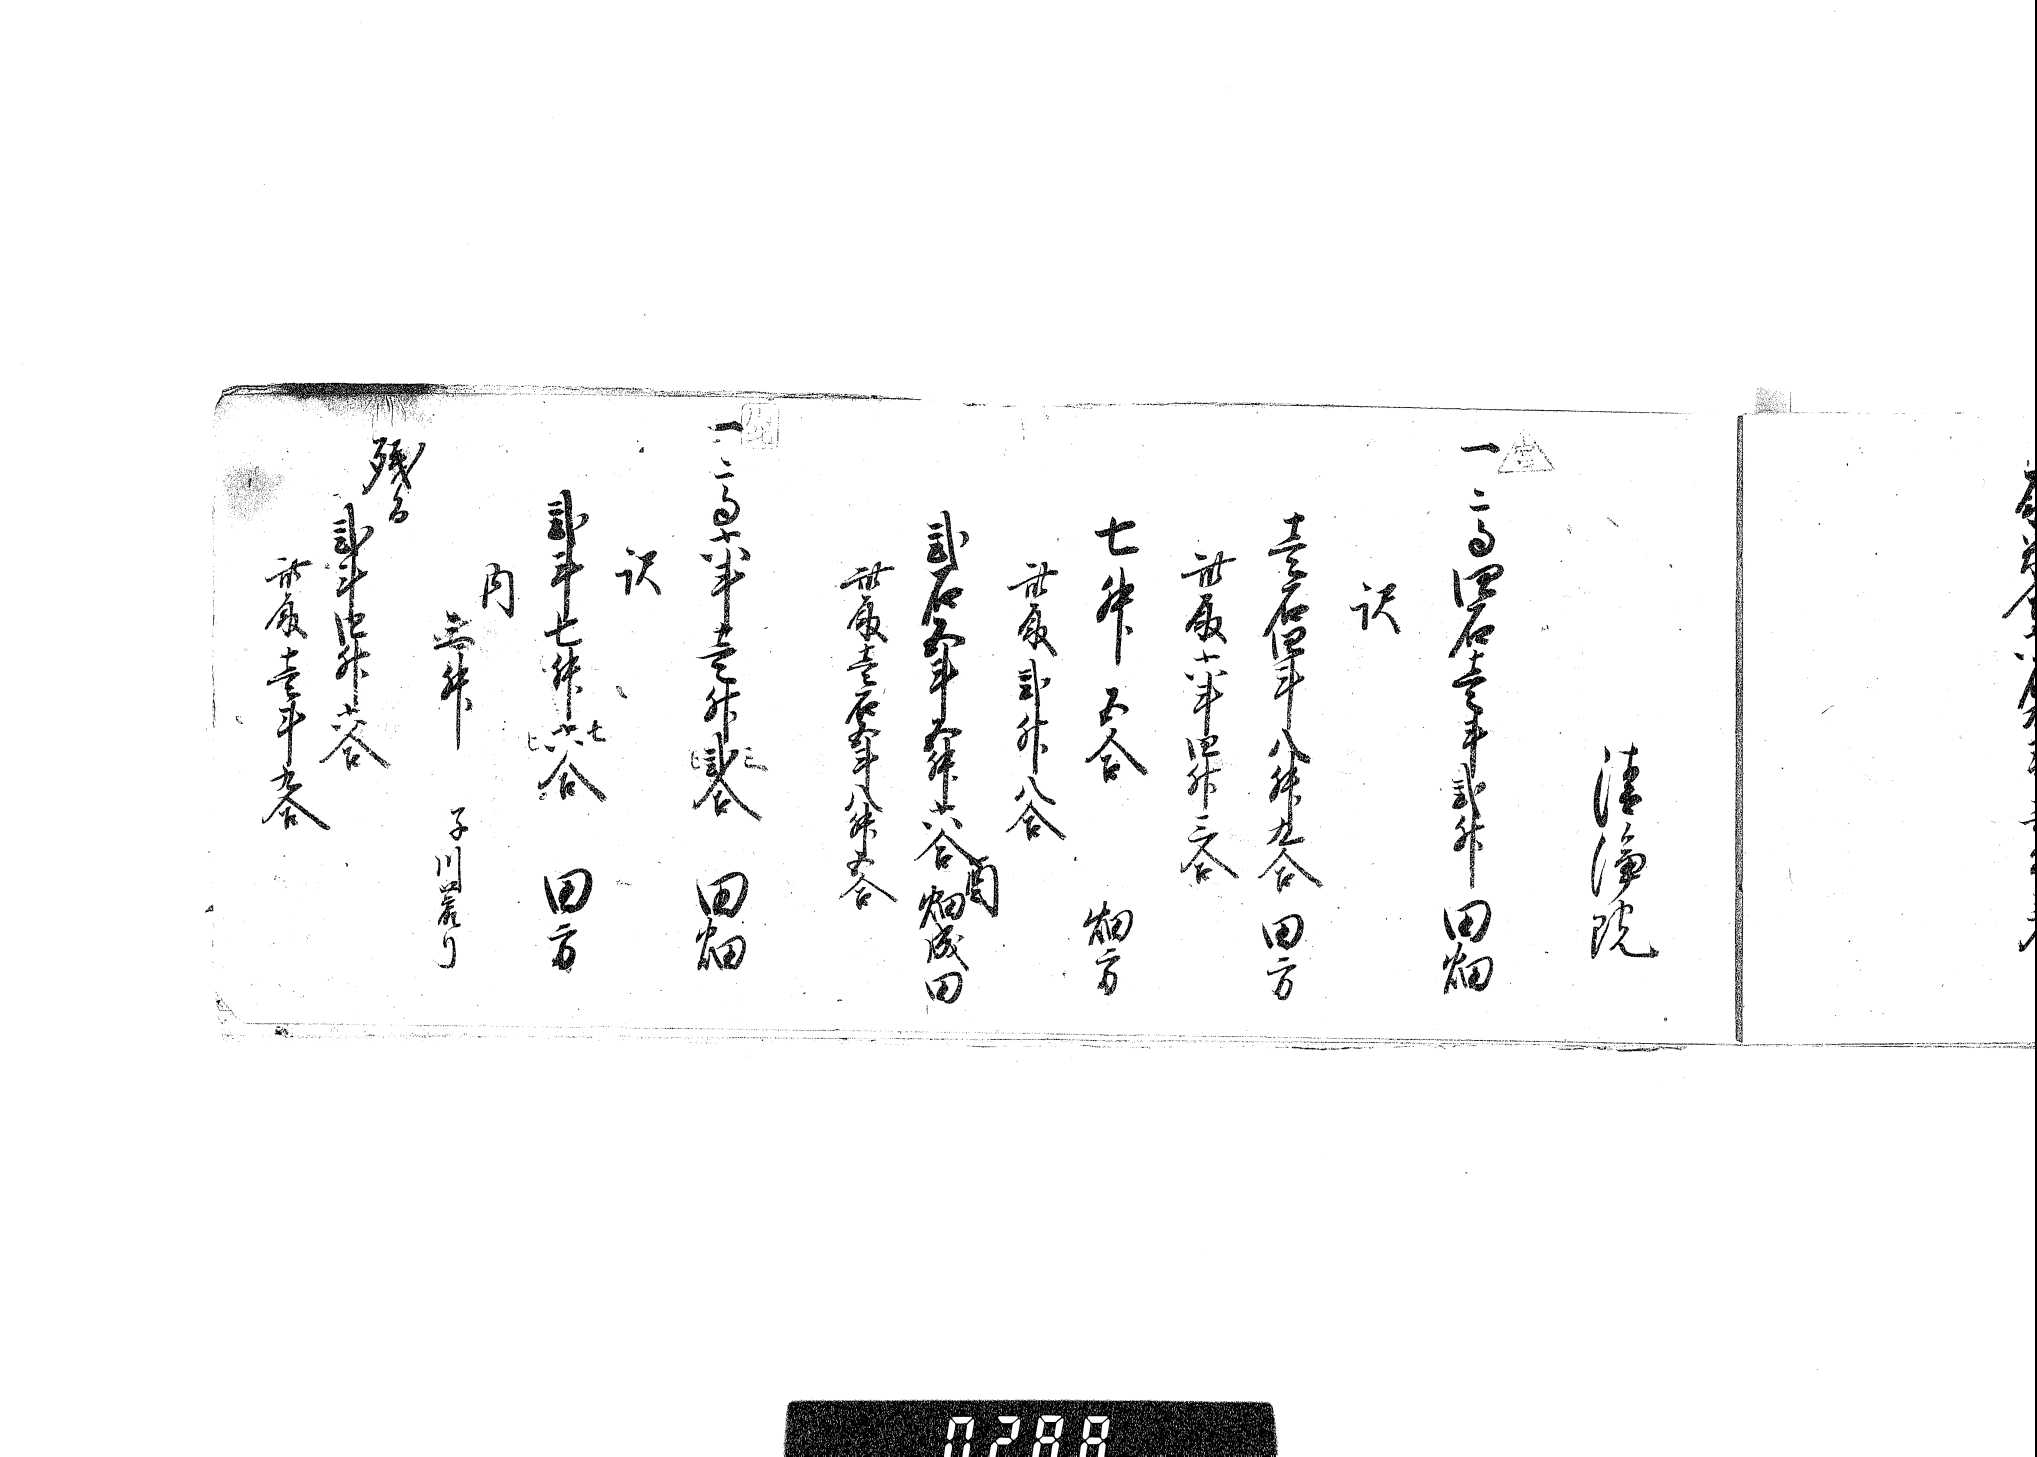 清浄院
一 高四石壱斗弐升 田畑
訳
壱石四斗八升九合 田方
此取六斗四升三合
七升五合 畑方
此取弐升八合
弐石五斗五升六合 畑成田
酉
此取壱石五斗八升五合
一 高六斗壱升弐合 田畑
三
訳
弐斗七升六合 田方
七
内
三升 子川荒引
残而
弐斗四升六合
此取壱斗九合
0288